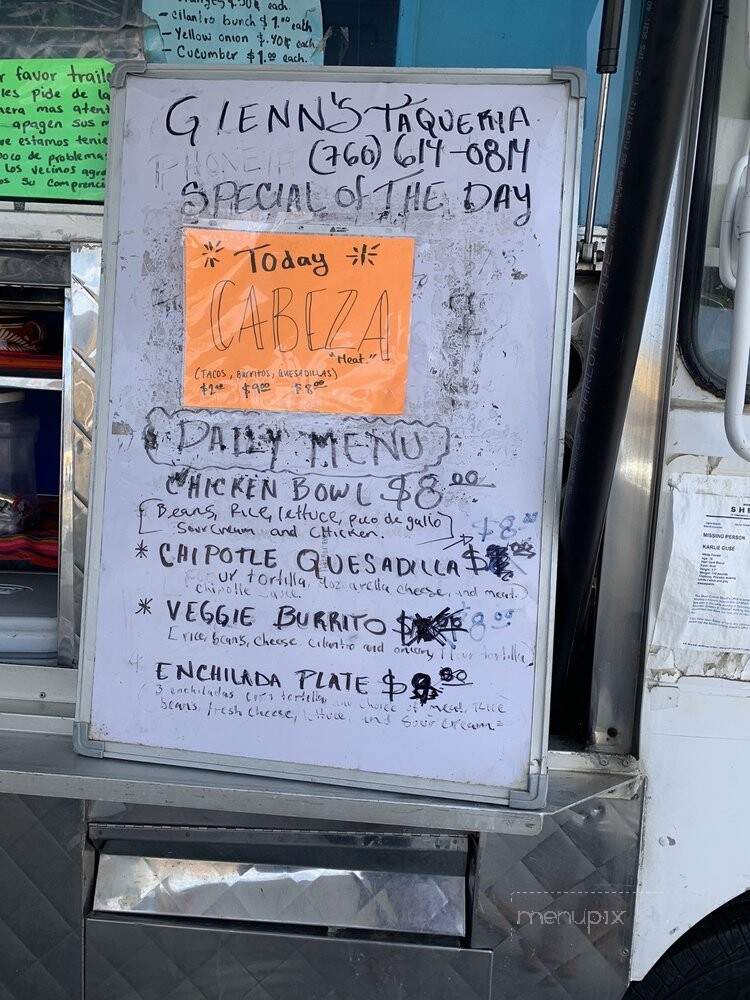 - cilantro bunch $1.00 each
- Yellow onion $.40¢ each
- Cucumber $1.00 each.
r favor traile
les pide de la
nera mas aten
apagen sus m
ue estamos tenie
poco de problema
los vecinos agra
os su comprenci
GlENN'S TAQUERIA
(760) 614-0814
SPECIAL Of THE DAY
Today
CABEZA
"Meat."
(TACOS, BURRITOS, QUESADILLAS)
$2.00 $9.00 $8.00
DAILY MENU
CHICKEN BOWL $8.00
[Beans, Rice, lettuce, pico de gallo
Sour Cream and Chicken.]
$8.00
* CHIPOTLE QUESADILLA $
ur tortilla, Mozzarella cheese, and meat.
Chipotle sauce
* VEGGIE BURRITO $8.00
[rice, beans, cheese, cilantro and onions, flour tortilla]
ENCHILADA PLATE $9.00
3 enchiladas corn tortilla, choice of meat, Rice
beans, fresh cheese, lettuce, and Sour Cream
MISSING PERSON
KARLIE GUSE
menupix